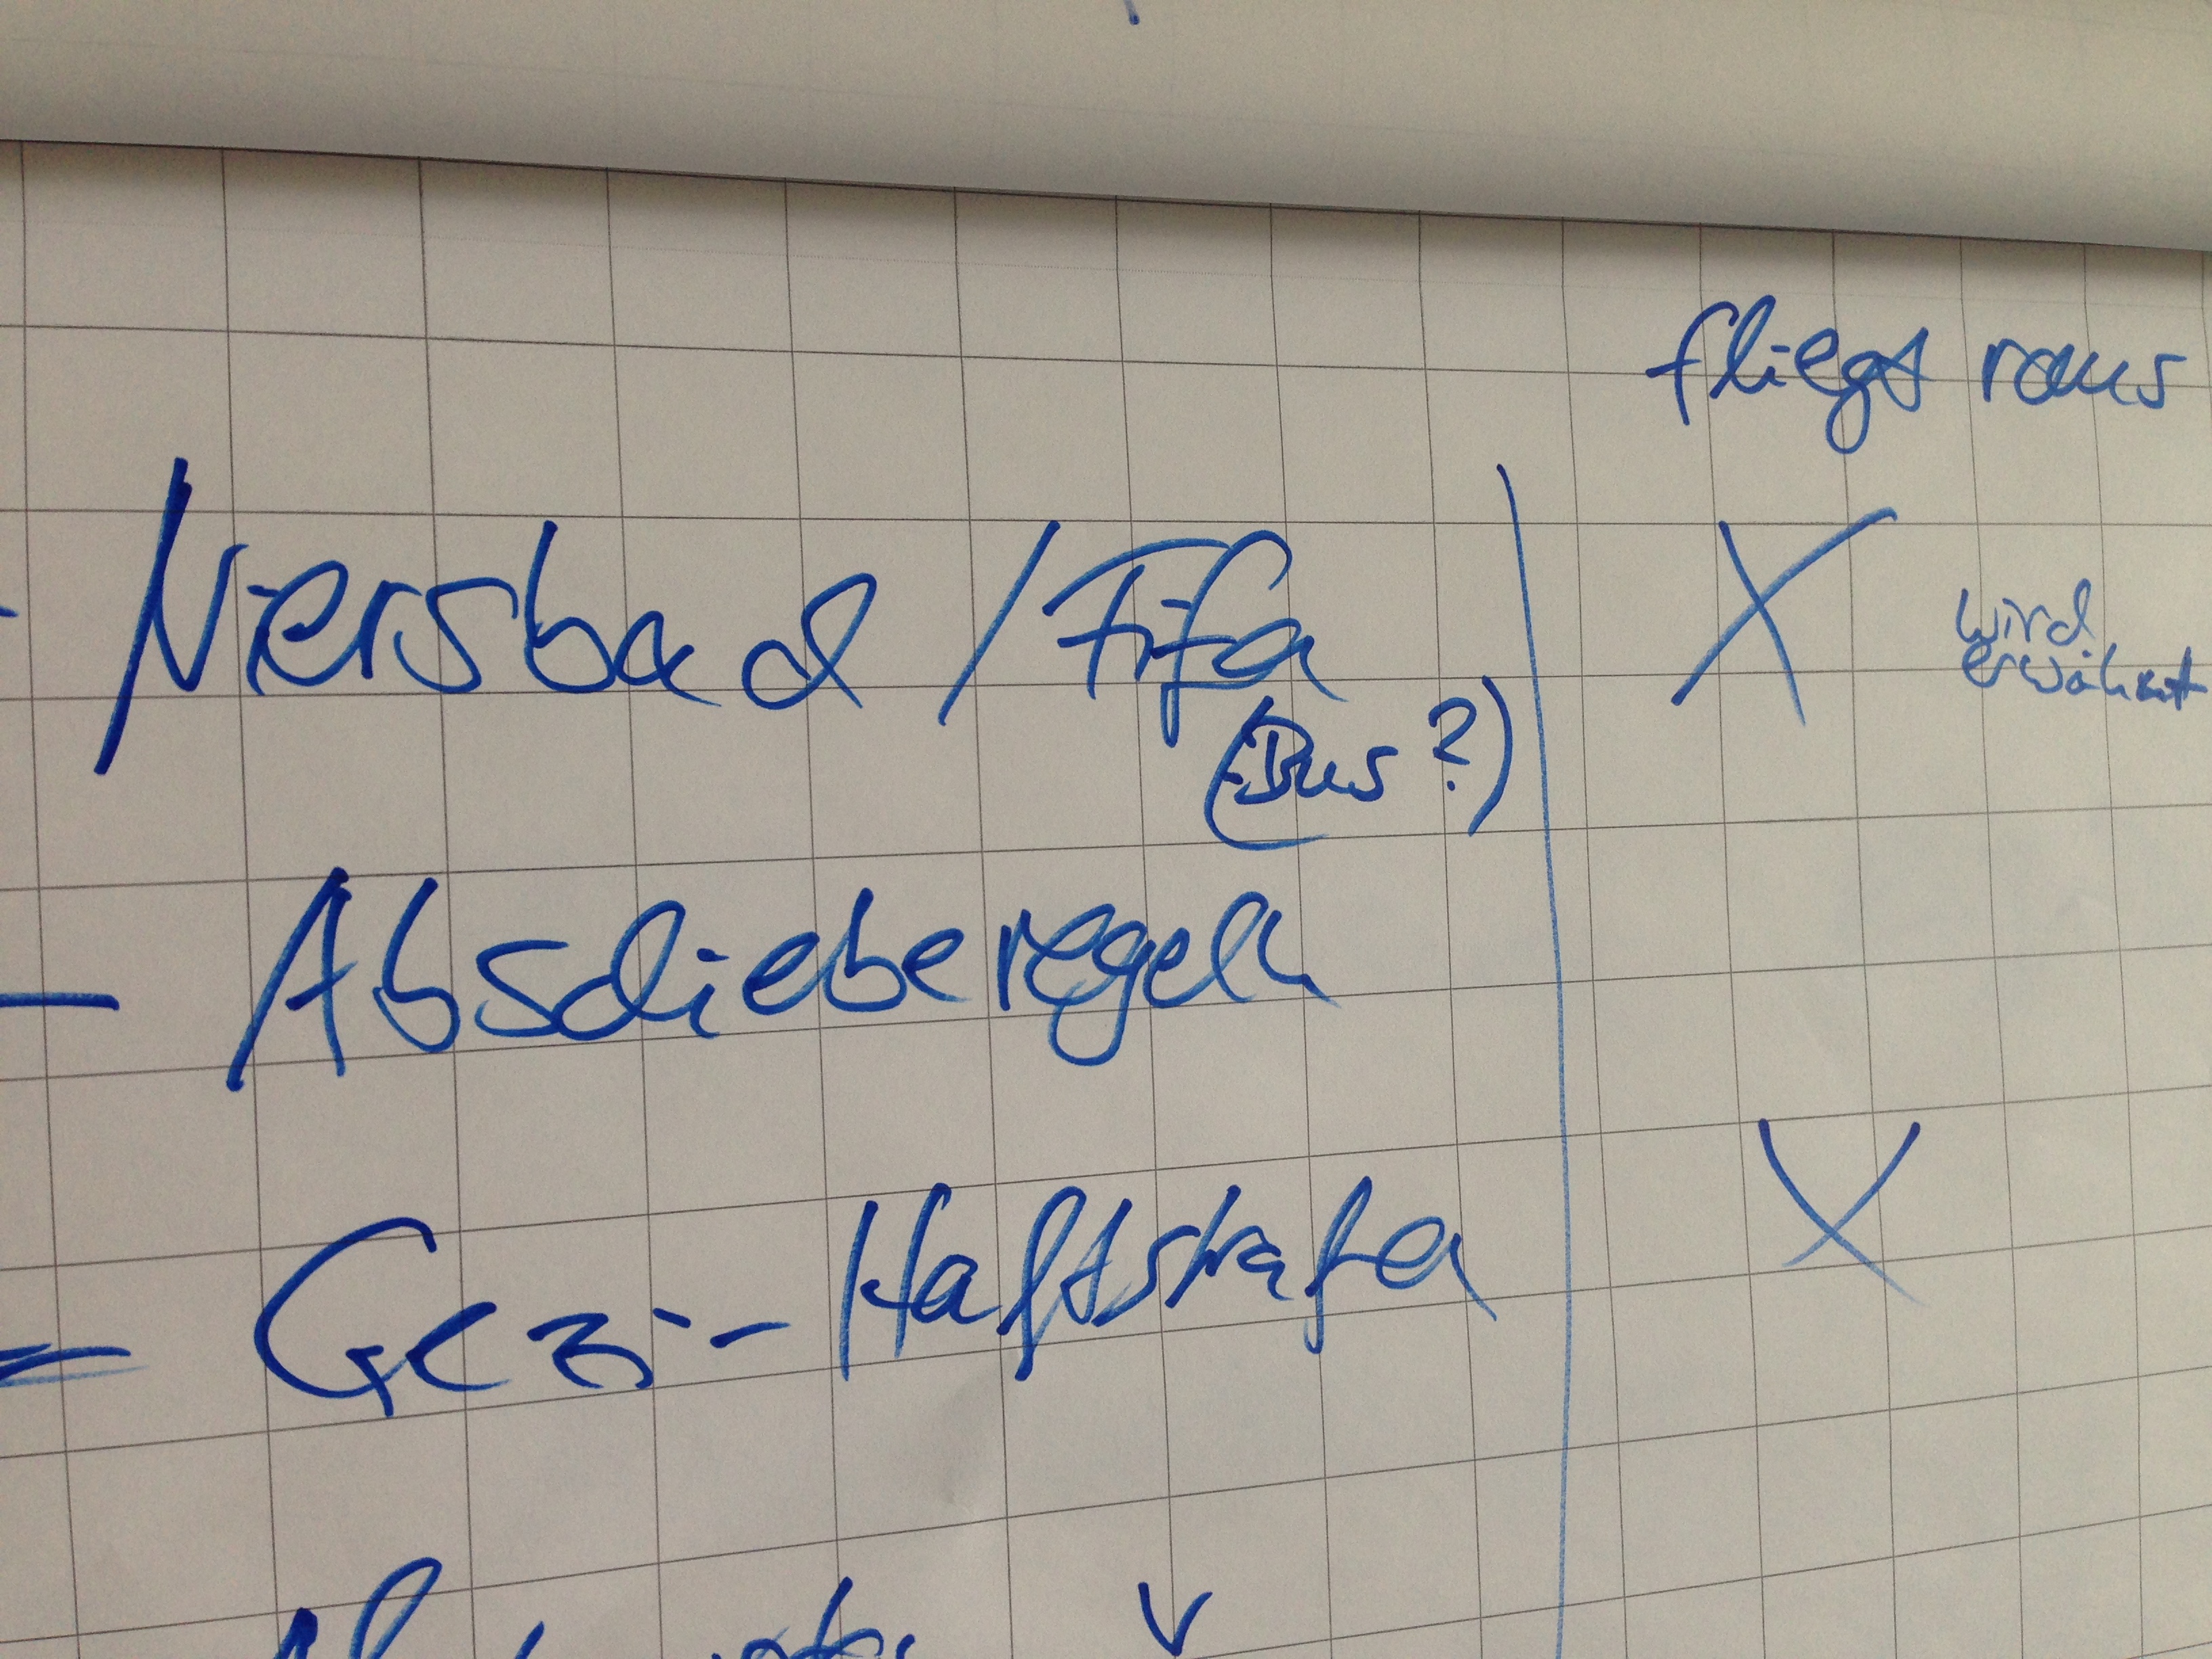 fliegt raus
- Niersbad / Fifa X wird
erwähnt
(Bus?)
- Abschieberegeln
= Gez-Haftstrafe X